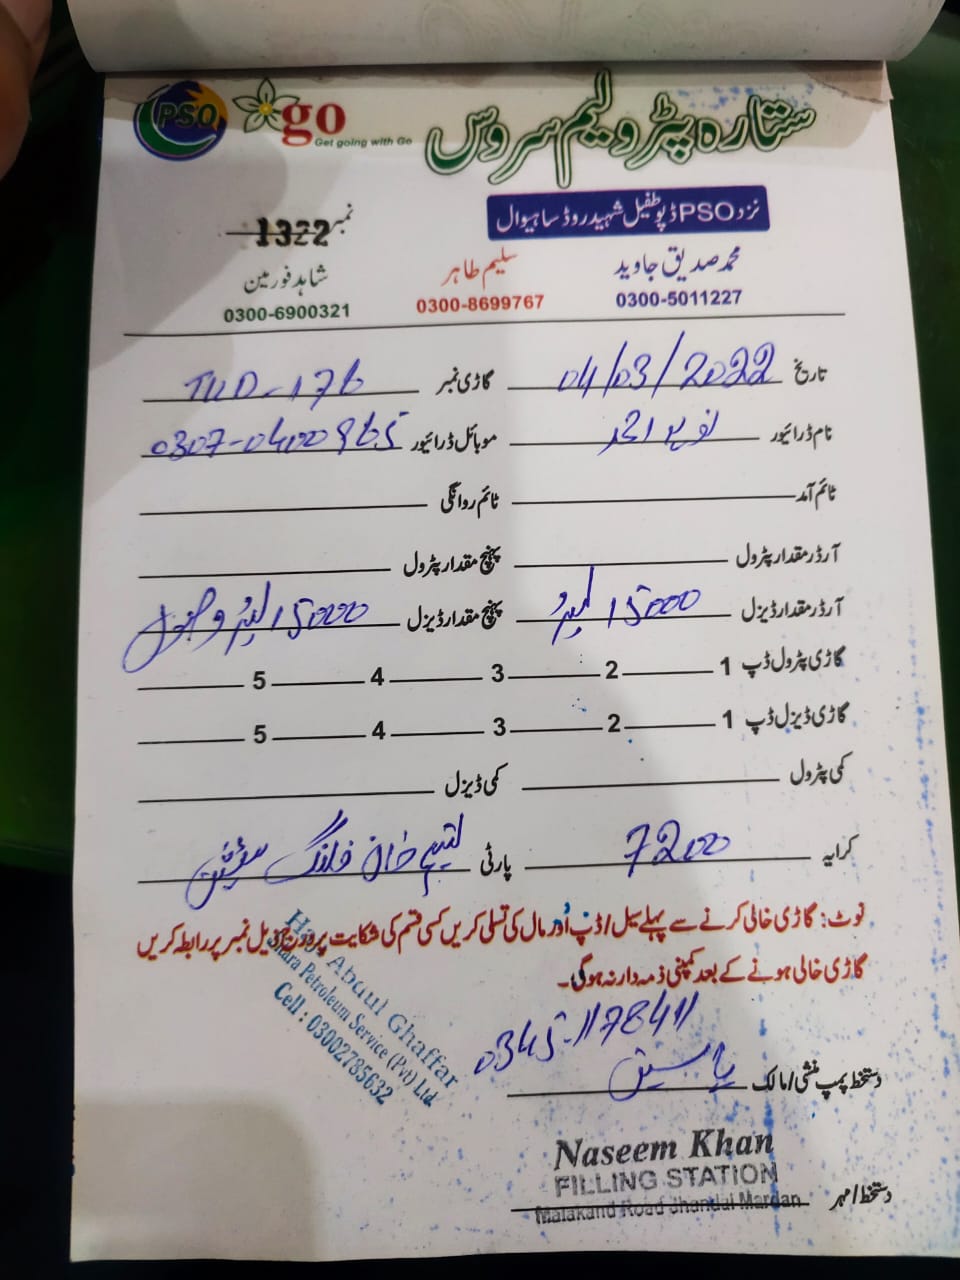 PSO go Get going with Go ستارہ پٹرولیم سروس
نزد PSO ڈپو طفیل شہید روڈ ساہیوال
نمبر 1322
محمد صدیق جاوید سلیم طاہر شاہد فورمین
0300-5011227 0300-8699767 0300-6900321
تاریخ 04/03/2022 گاڑی نمبر TUD-176
نام ڈرائیور نوید احمد موبائل ڈرائیور 0307-0400965
ٹائم آمد ٹائم روانگی
آرڈر مقدار پٹرول پہنچ مقدار پٹرول
آرڈر مقدار ڈیزل 15000 لیٹر پہنچ مقدار ڈیزل 15000 لیٹر وصول
گاڑی پٹرول ڈپ 1 2 3 4 5
گاڑی ڈیزل ڈپ 1 2 3 4 5
کمی پٹرول کمی ڈیزل
کرایہ 7200 پارٹی نسیم خان فلنگ سٹیشن
نوٹ: گاڑی خالی کرنے سے پہلے سیل/ڈپ اور مال کی تسلی کریں کسی قسم کی شکایت پر درج ذیل نمبر پر رابطہ کریں
گاڑی خالی ہونے کے بعد کمپنی ذمہ دار نہ ہوگی۔
Haji Abdul Ghaffar
Sitara Petroleum Service (Pvt) Ltd.
Cell : 03002785632
0345-1178411
دستخط پمپ منشی/مالک یاسین
Naseem Khan
FILLING STATION
Malakand Road Jhandai Mardan
دستخط/مہر